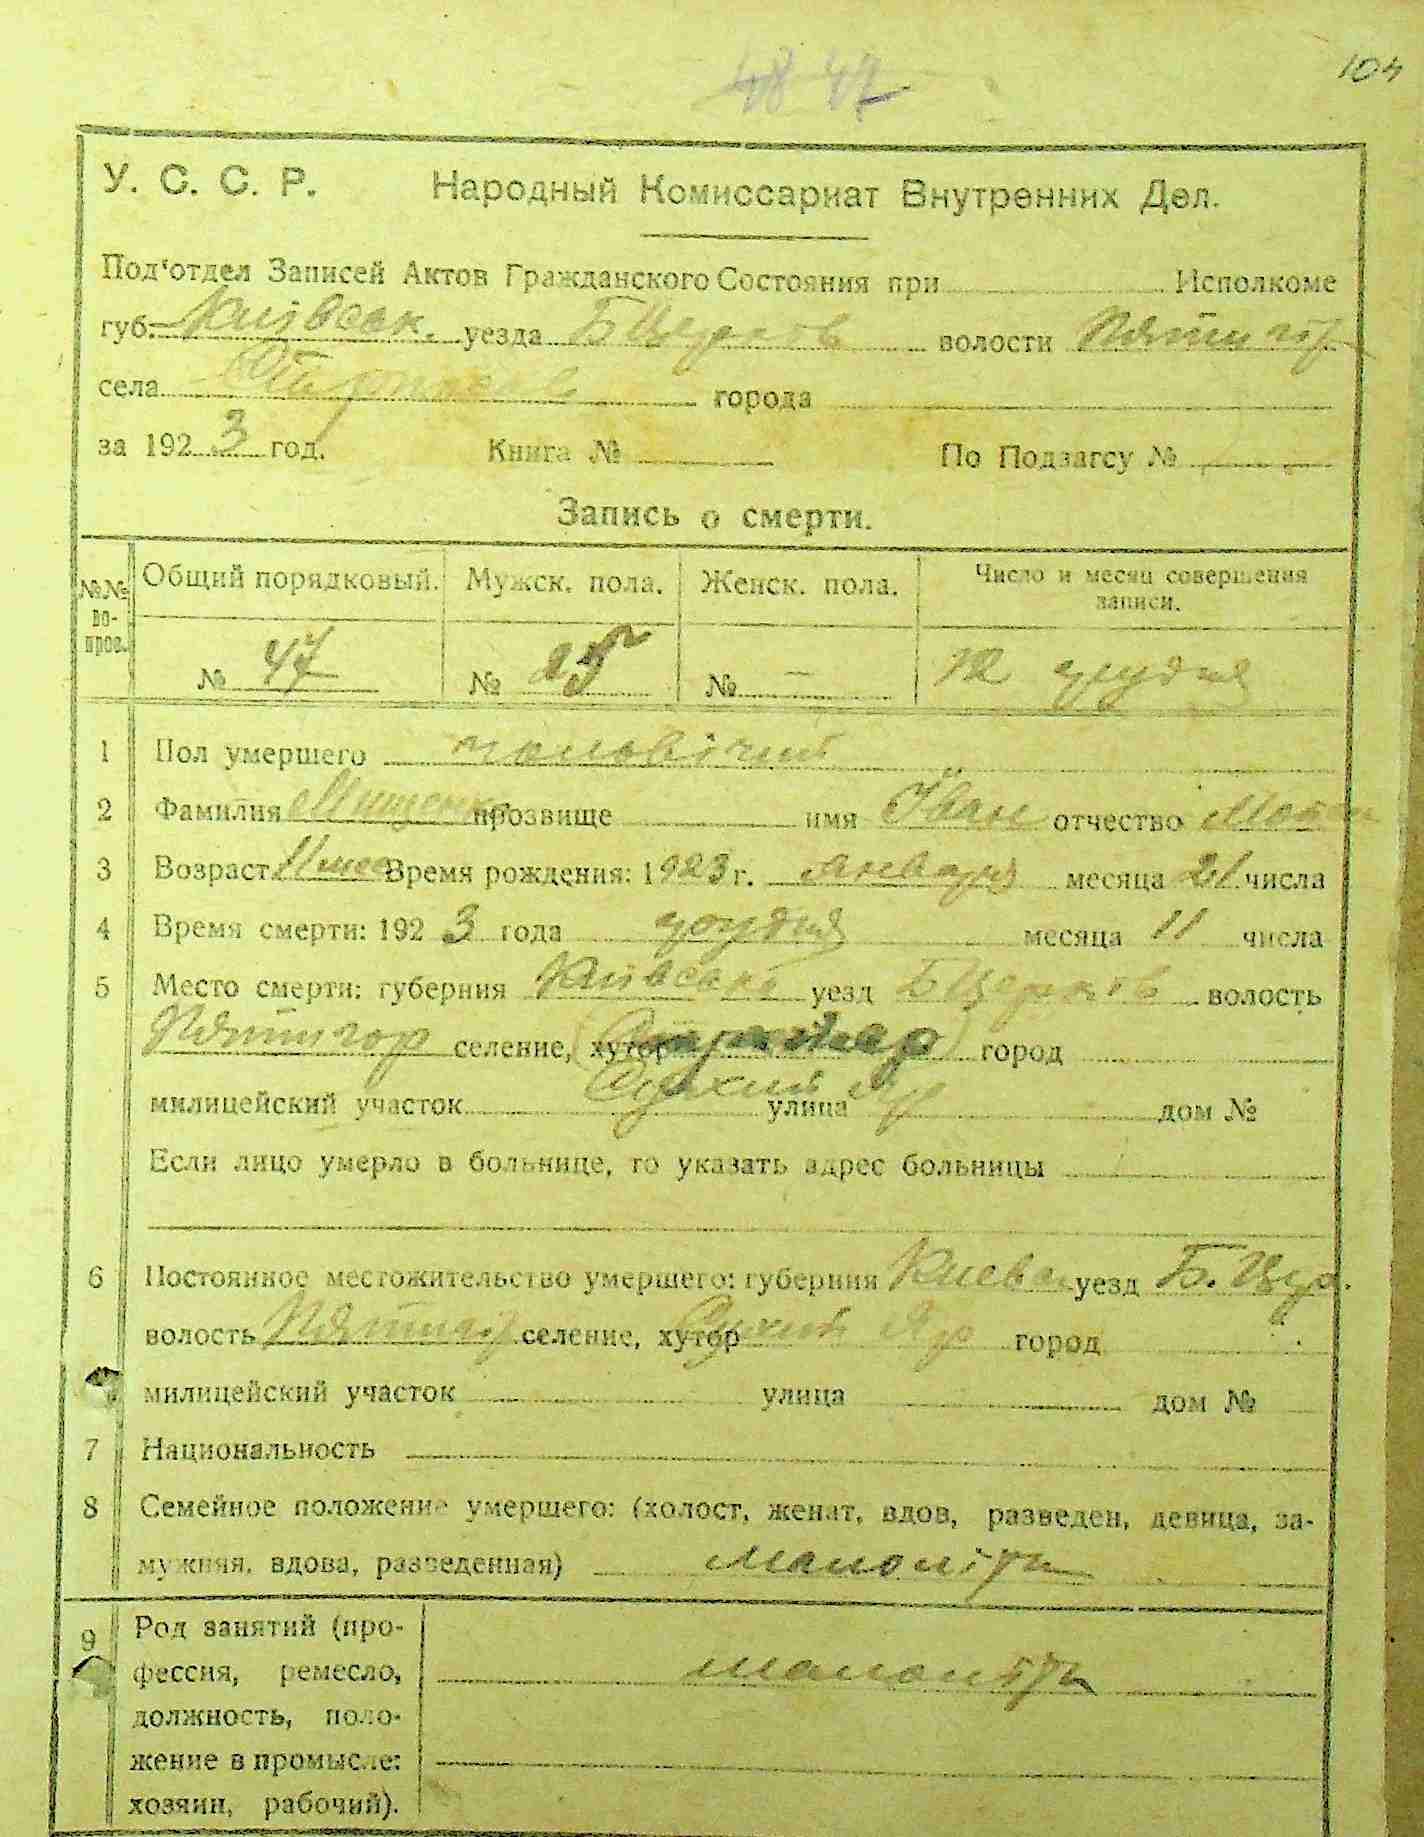 104
48 47
У. С. С. Р. Народный Комиссариат Внутренних Дел.
Под'отдел Записей Актов Гражданского Состояния при Исполкоме
губ. Київськ. уезда Б Церков волости Пятигор
села города
за 1923 год. Книга № По Подзагсу №
Запись о смерти.
№№ вопрос. Общий порядковый. Мужск. пола. Женск. пола. Число и месяц совершения записи.
№ 47 № 25 № — 12 грудня
1 Пол умершего чоловічий
2 Фамилия Мищенко прозвище имя Іван отчество
3 Возраст 11 мес Время рождения: 1923 г. января месяца 21 числа
4 Время смерти: 1923 года грудня месяца 11 числа
5 Место смерти: губерния Київська уезд Б Церков волость
Пятигор селение, хутор город
милицейский участок Сухий Яр улица дом №
Если лицо умерло в больнице, то указать адрес больницы
6 Постоянное местожительство умершего: губерния Киевск уезд Б. Цер.
волость Пятигор селение, хутор Сухий Яр город
милицейский участок улица дом №
7 Национальность
8 Семейное положение умершего: (холост, женат, вдов, разведен, девица, за-
мужняя, вдова, разведенная) малолітн
9 Род занятий (про-
фессия, ремесло, малолітн
должность, поло-
жение в промысле:
хозяин, рабочий).